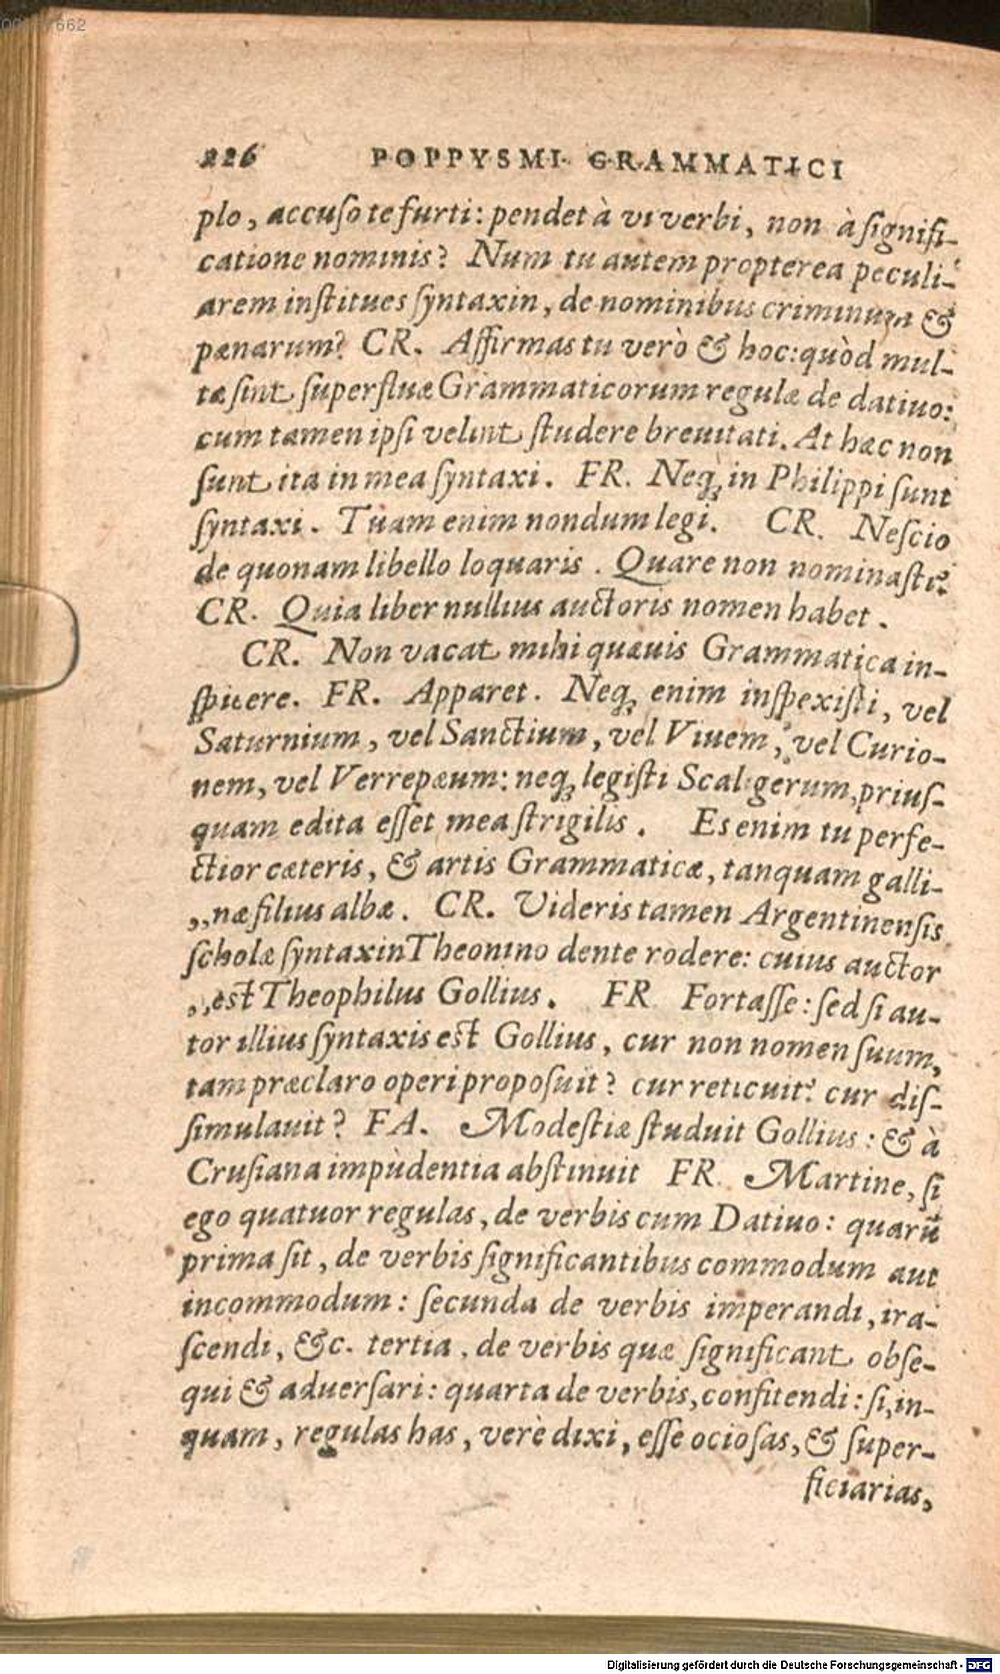 00   662
226 POPPYSMI GRAMMATICI
plo, accuſo te furti: pendet à vi verbi, non à ſignifi-
catione nominis? Num tu autem propterea peculi-
arem inſtitues ſyntaxin, de nominibus criminum &
pænarum? CR. Affirmas tu verò & hoc: quòd mul-
tæ ſint ſuperfluæ Grammaticorum regulæ de datiuo:
cum tamen ipſi velint ſtudere breuitati. At hæc non
ſunt ita in mea ſyntaxi. FR. Neq; in Philippi ſunt
ſyntaxi. Tuam enim nondum legi. CR. Neſcio
de quonam libello loquaris. Quare non nominaſti?
CR. Quia liber nullius auctoris nomen habet.
CR. Non vacat mihi quæuis Grammatica in-
ſpicere. FR. Apparet. Neq; enim inſpexiſti, vel
Saturnium, vel Sanctium, vel Viuem, vel Curio-
nem, vel Verrepæum: neq; legiſti Scaligerum, priuſ-
quam edita eſſet mea ſtrigilis. Es enim tu perfe-
ctior cæteris, & artis Grammaticæ, tanquam galli-
,,næ filius albæ. CR. Videris tamen Argentinenſis
ſcholæ ſyntaxin Theonino dente rodere: cuius auctor
,,eſt Theophilus Gollius. FR Fortaſſe: ſed ſi au-
tor illius ſyntaxis eſt Gollius, cur non nomen ſuum,
tam præclaro operi propoſuit? cur reticuit? cur diſ-
ſimulauit? FA. Modeſtiæ ſtuduit Gollius: & à
Cruſiana impùdentia abſtinuit FR. Martine, ſi
ego quatuor regulas, de verbis cum Datiuo: quarū
prima ſit, de verbis ſignificantibus commodum aut
incommodum: ſecunda de verbis imperandi, ira-
ſcendi, &c. tertia, de verbis quæ ſignificant obſe-
qui & aduerſari: quarta de verbis, confitendi: ſi, in-
quam, regulas has, verè dixi, eſſe ocioſas, & ſuper-
ficiarias,
Digitalisierung gefördert durch die Deutsche Forschungsgemeinschaft - DFG